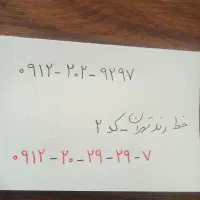 ۰۹۱۲-۲۰۲-۹۲۹۷
خط رند تهران-کد ۲
۰۹۱۲-۲۰-۲۹-۲۹-۷